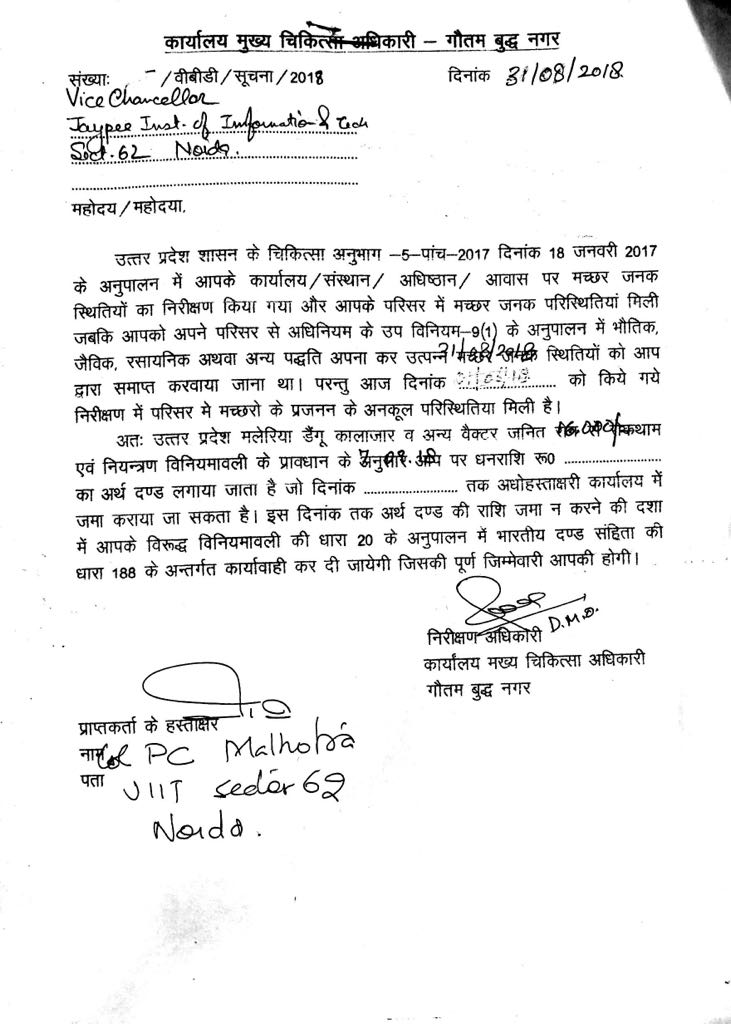 कार्यालय मुख्य चिकित्सा अधिकारी – गौतम बुद्ध नगर
संख्याः - /वीबीडी/सूचना/2018 दिनांक 31/08/2018
Vice Chancellor
Jaypee Inst. of Information & Tech
Sect. 62 Noida.
महोदय/महोदया,
उत्तर प्रदेश शासन के चिकित्सा अनुभाग –5–पांच–2017 दिनांक 18 जनवरी 2017
के अनुपालन में आपके कार्यालय/संस्थान/ अधिष्ठान/ आवास पर मच्छर जनक
स्थितियों का निरीक्षण किया गया और आपके परिसर में मच्छर जनक परिस्थितियां मिली
जबकि आपको अपने परिसर से अधिनियम के उप विनियम–9(1) के अनुपालन में भौतिक,
जैविक, रसायनिक अथवा अन्य पद्धति अपना कर उत्पन्न मच्छर जनक स्थितियों को आप
31/08/2018
द्वारा समाप्त करवाया जाना था। परन्तु आज दिनांक ............... को किये गये
निरीक्षण में परिसर मे मच्छरो के प्रजनन के अनकूल परिस्थितिया मिली है।
अतः उत्तर प्रदेश मलेरिया डैंगू कालाजार व अन्य वैक्टर जनित रोग से रोकथाम
एवं नियन्त्रण विनियमावली के प्रावधान के अनुसार आप पर धनराशि रू0 ...............
का अर्थ दण्ड लगाया जाता है जो दिनांक ............... तक अधोहस्ताक्षरी कार्यालय में
जमा कराया जा सकता है। इस दिनांक तक अर्थ दण्ड की राशि जमा न करने की दशा
में आपके विरूद्ध विनियमावली की धारा 20 के अनुपालन में भारतीय दण्ड संहिता की
धारा 188 के अन्तर्गत कार्यावाही कर दी जायेगी जिसकी पूर्ण जिम्मेवारी आपकी होगी।
D.M.O.
निरीक्षण अधिकारी
कार्यालय मख्य चिकित्सा अधिकारी
गौतम बुद्ध नगर
प्राप्तकर्ता के हस्ताक्षर
नाम Col PC Malhotra
पता JIIT sector 62
Noida.